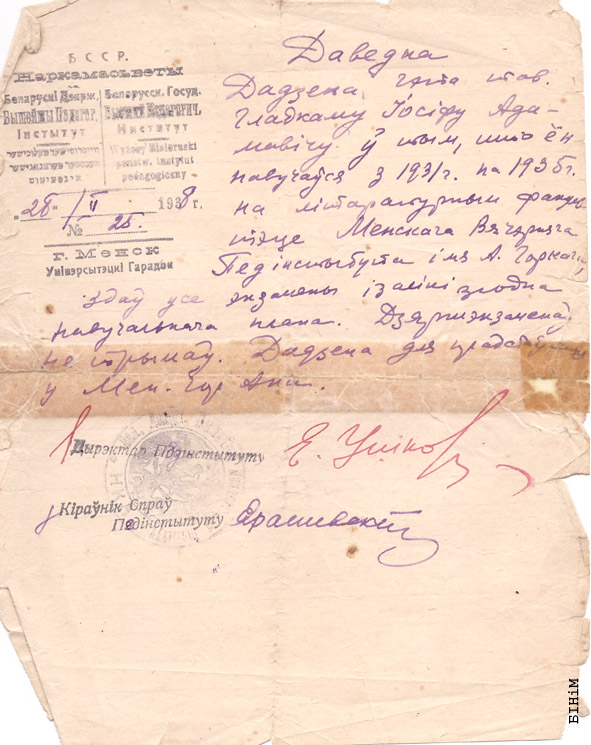 БССР.
Наркамасьветы
Беларускі Дзярж.
Вышэйшы Педагог.
Інстытут
Белорусск. Госуд.
Институт
Wyższy Białoruski
państw. Instytut
pedagogiczny
"28" / II 1938 г.
№ 25.
г. Менск
Унівэрсытэцкі Гарадок
Даведка
Дадзена гэта тав.
Гладкаму Іосіфу Ада-
мовічу ў тым, што ён
навучаўся з 1931 г. па 1935 г.
на літаратурным факуль
тэце Менскага Вячэрняга
Педінстытута імя А. Горкага,
Здаў усе экзамены і залікі згодна
навучальнага плана. Дзяржэкзаменаў
не трымаў. Дадзена для прадстаўлення
у Мен.
Дырэктар Пэдінстытуту
Кіраўнік Спраў
Пэдінстытуту
БІНіМ